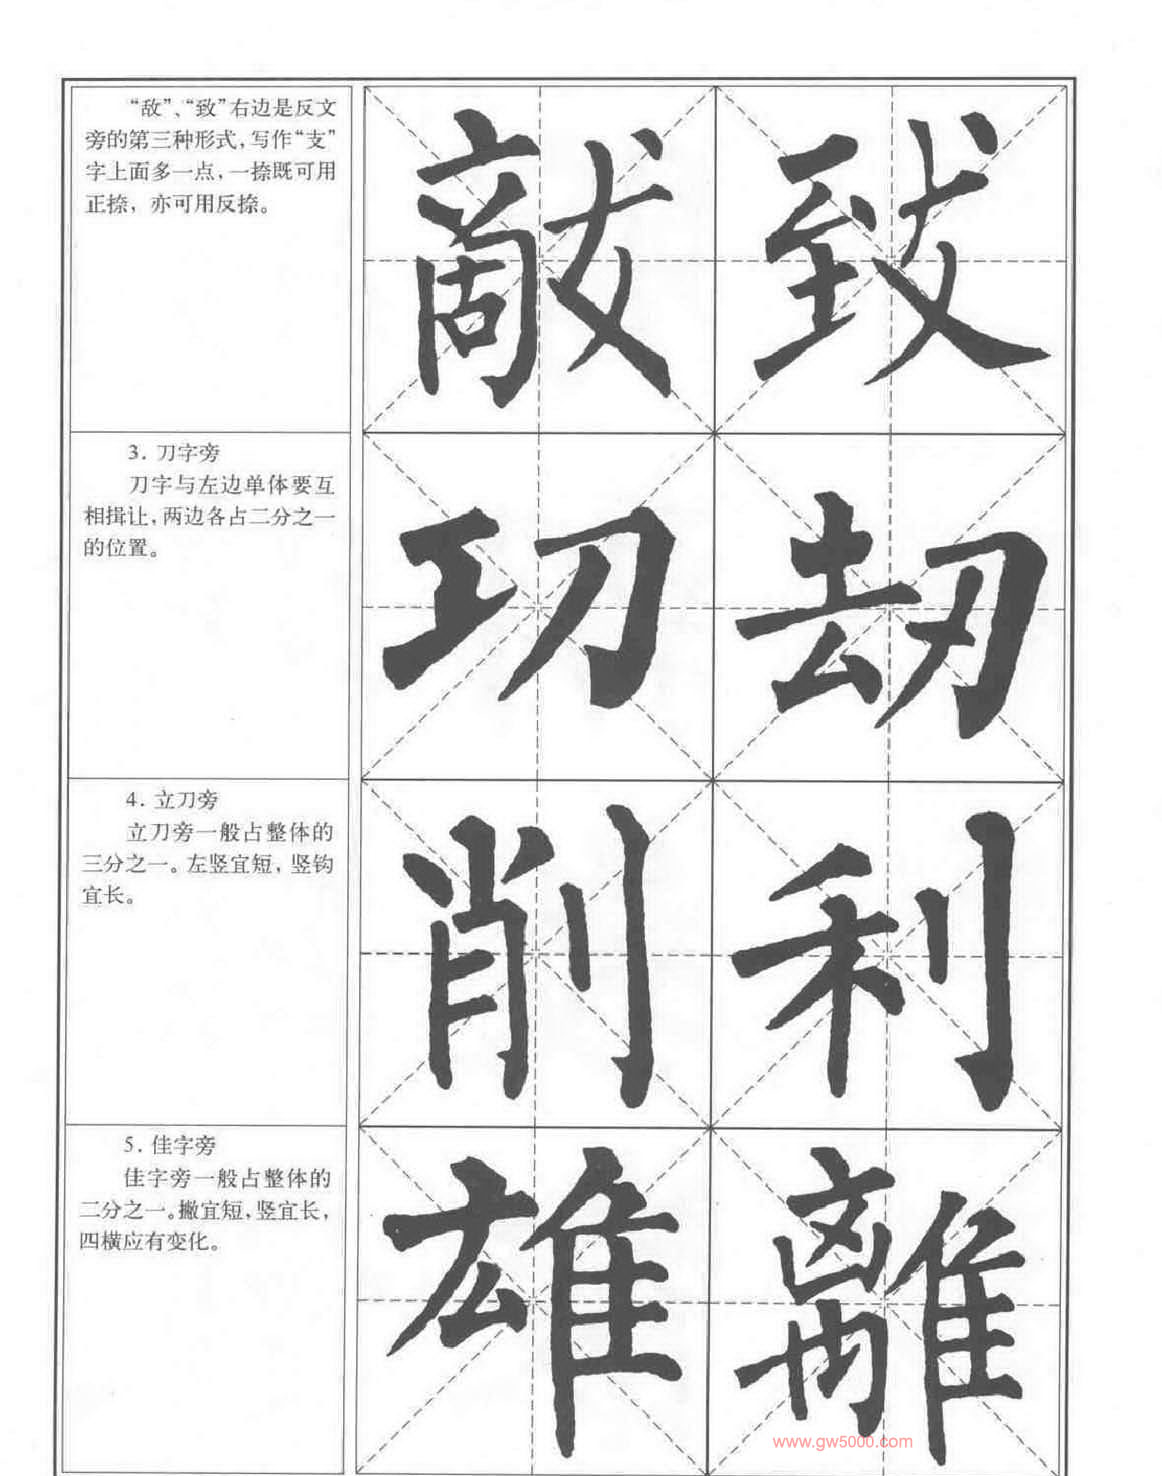 “敌”、“致”右边是反文
旁的第三种形式，写作“支”
字上面多一点，一捺既可用
正捺，亦可用反捺。
敵 致
3. 刀字旁
刀字与左边单体要互
相揖让，两边各占二分之一
的位置。
㓛 刼
4. 立刀旁
立刀旁一般占整体的
三分之一。左竖宜短，竖钩
宜长。
削 利
5. 佳字旁
佳字旁一般占整体的
二分之一。撇宜短，竖宜长，
四横应有变化。
雄 離
www.gw5000.com